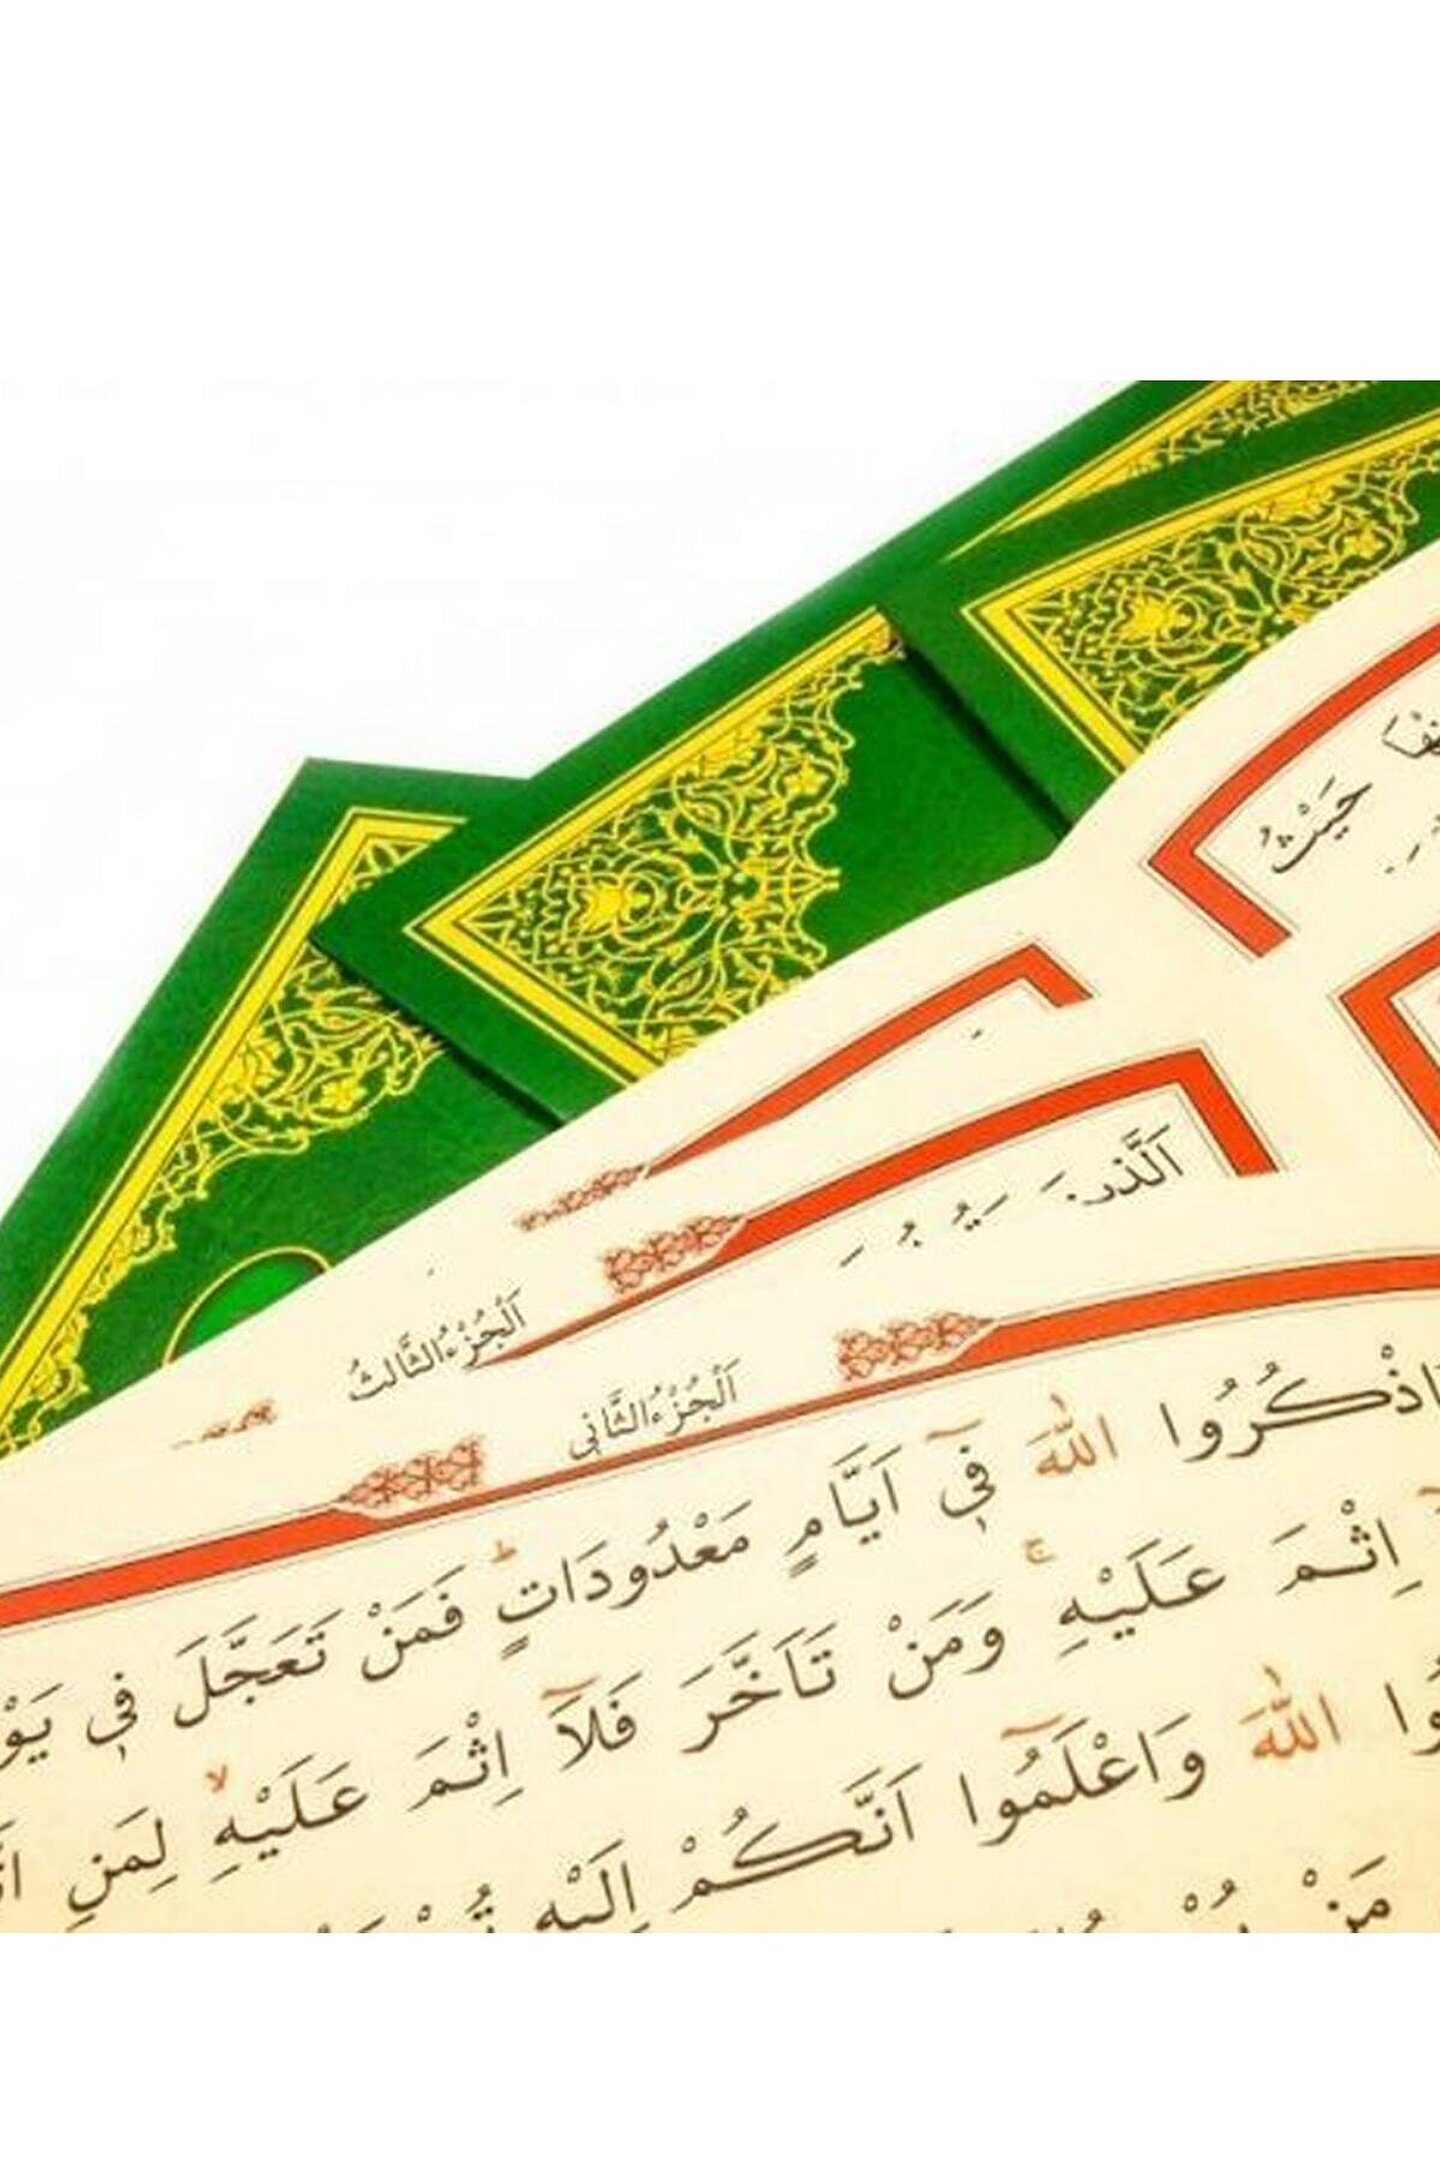 حَيْثُ
اَلَّذ۪ينَ
اَلْجُزْءُ الثَّالِثُ
اَلْجُزْءُ الثَّانِى
اذْكُرُوا اللّٰهَ ف۪ٓى اَيَّامٍ مَعْدُودَاتٍۜ فَمَنْ تَعَجَّلَ ف۪ى
اِثْمَ عَلَيْهِۚ وَمَنْ تَاَخَّرَ فَلَٓا اِثْمَ عَلَيْهِۙ لِمَنِ
اللّٰهَ وَاعْلَمُٓوا اَنَّكُمْ اِلَيْهِ
مَنْ